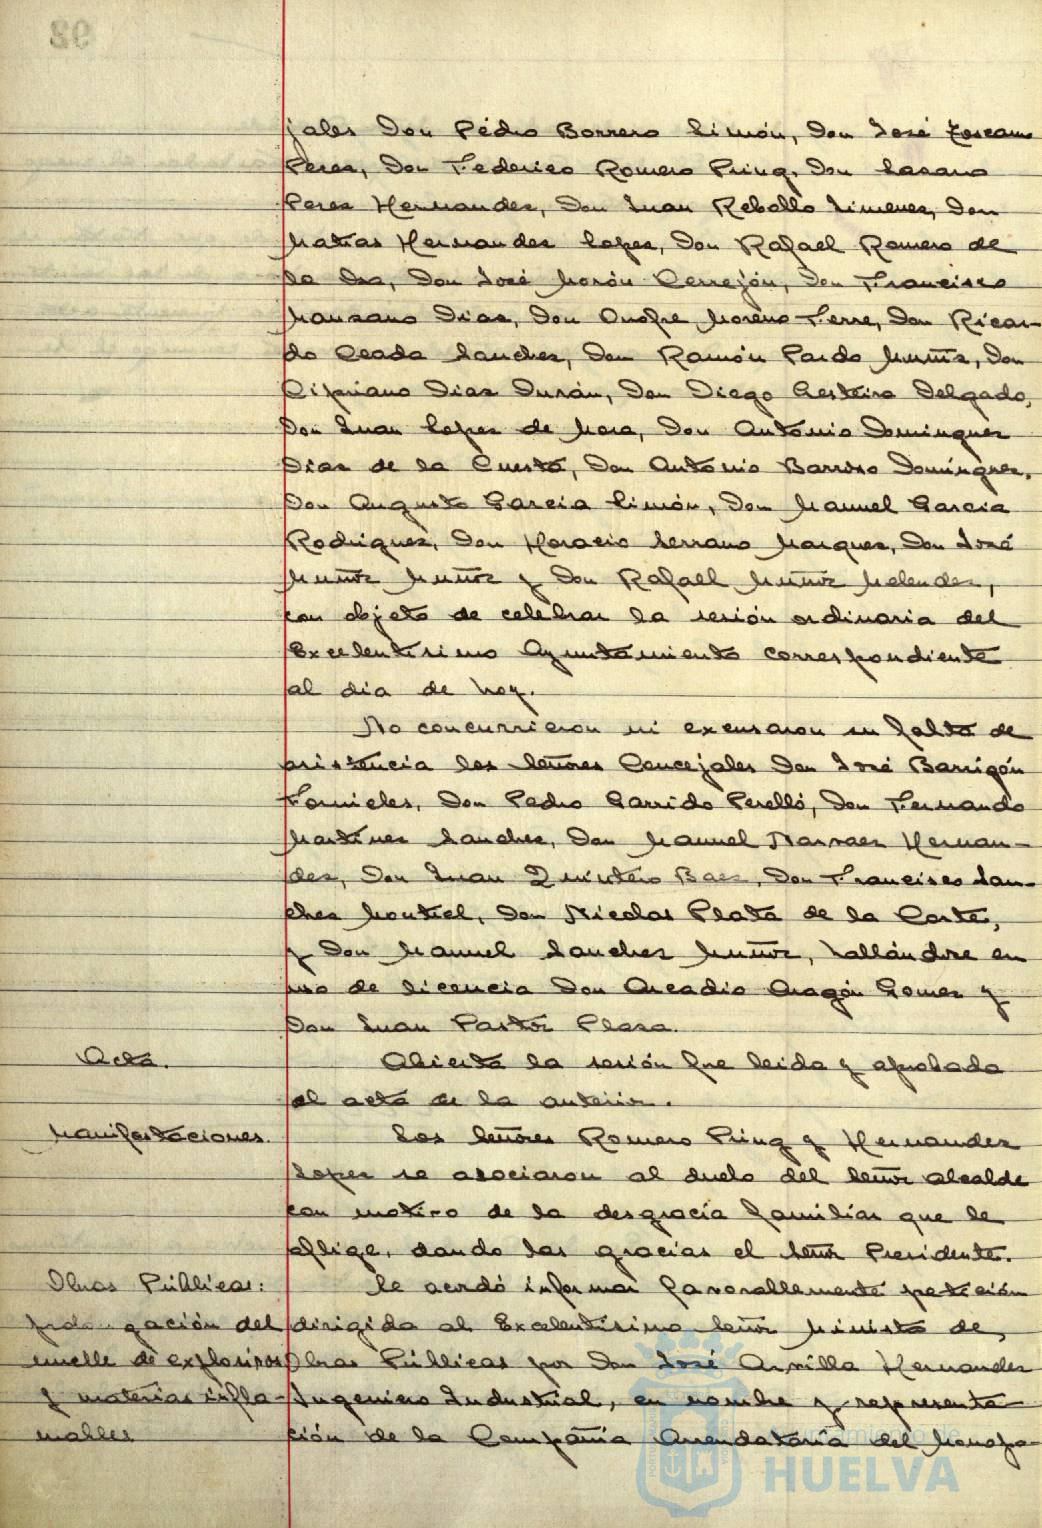 jales Don Pédro Borrero Limón, Don José Toscano
Peres, Don Federico Romero Pring, Don Lasaro
Peres Hernandes, Don Juan Rebollo Jimenes, Don
Matias Hernandes Lopes, Don Rafael Romero de
la Osa, Don José Morón Cerrejón, Don Francisco
Mansano Dias, Don Onofre Moreno Ferre, Don Ricar-
do Ceada Sanches, Don Ramón Pardo Muñiz, Don
Cipriano Dias Durán, Don Diego Gesteiro Delgado,
Don Juan Lopes de Mora, Don Antonio Domingues
Dias de la Cuesta, Don Antonio Barroso Domingues,
Don Augusto Garcia Limón, Don Manuel Garcia
Rodrigues, Don Horacio Serrano Marques, Don José
Muñoz Muñoz y Don Rafaell Muñoz Melendes,
con objeto de celebrar la sesión ordinaria del
Excelentisimo Ayuntamiento correspondiente
al dia de hoy.
No concurrieron ni excusaron su falta de
asistencia los Señores Concejales Don José Barrigón
Fornieles, Don Pedro Garrido Perelló, Don Fernando
Martines Sanches, Don Manuel Narvaes Hernan-
des, Don Juan Quintero Baes, Don Francisco San-
ches Montiel, Don Nicolas Plata de la Corte,
y Don Manuel Sanches Muñoz, hallándose en
uso de licencia Don Arcadio Aragón Gomes y
Don Juan Pastor Plasa.
Acta.
Abierta la sesión fue leida y aprobada
el acta de la anterior.
Manifestaciones.
Los Señores Romero Pring y Hernandes
Lopes se asociaron al duelo del Señor alcalde
con motivo de la desgracia familiar que le
aflige, dando las gracias el Señor Presidente.
Obras Públicas: Se acordó informar favorablemente petición
prolongación del dirigida al Excelentisimo Señor Ministro de
muelle de explosivos Obras Públicas por Don José Arvilla Hernandes
y materias infla- Ingeniero Industrial, en nombre y representa
mables ción de la Compañia Arrendataria del Monopo-
Ayuntamiento de
HUELVA